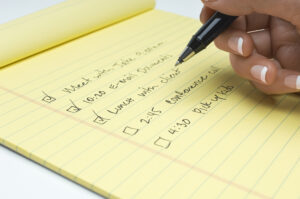 Meet with
10:30 E-mail Documents
Lunch with client
2:45 Conference call
4:30 Pick up kids